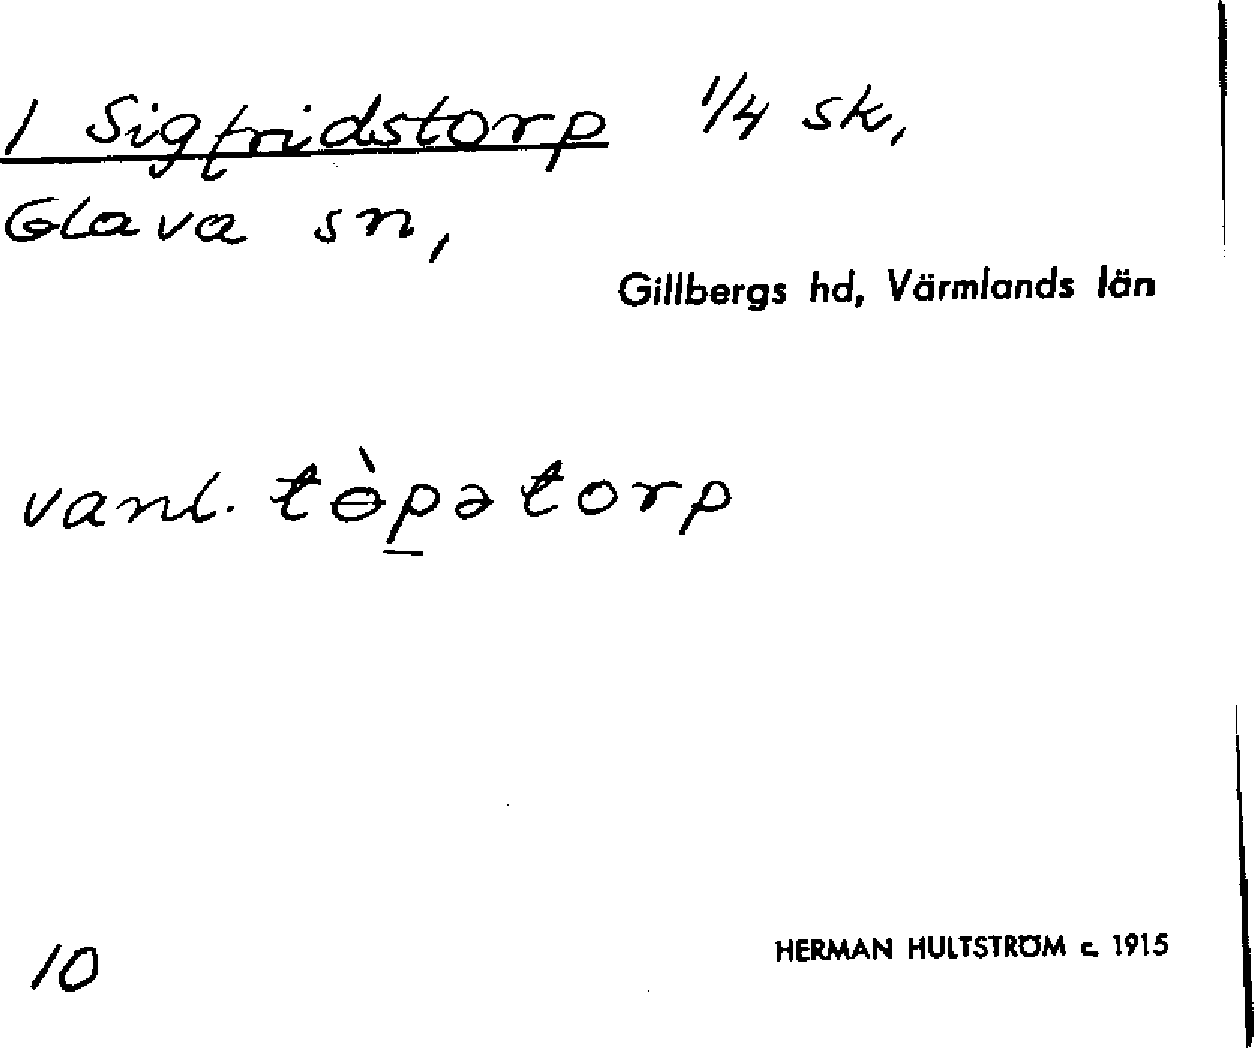 1 Sigfridstorp 1/4 sk,
Glava sn,
Gillbergs hd, Värmlands län
vanl. tɵ̀p̲ətorp
10
HERMAN HULTSTRÖM c. 1915